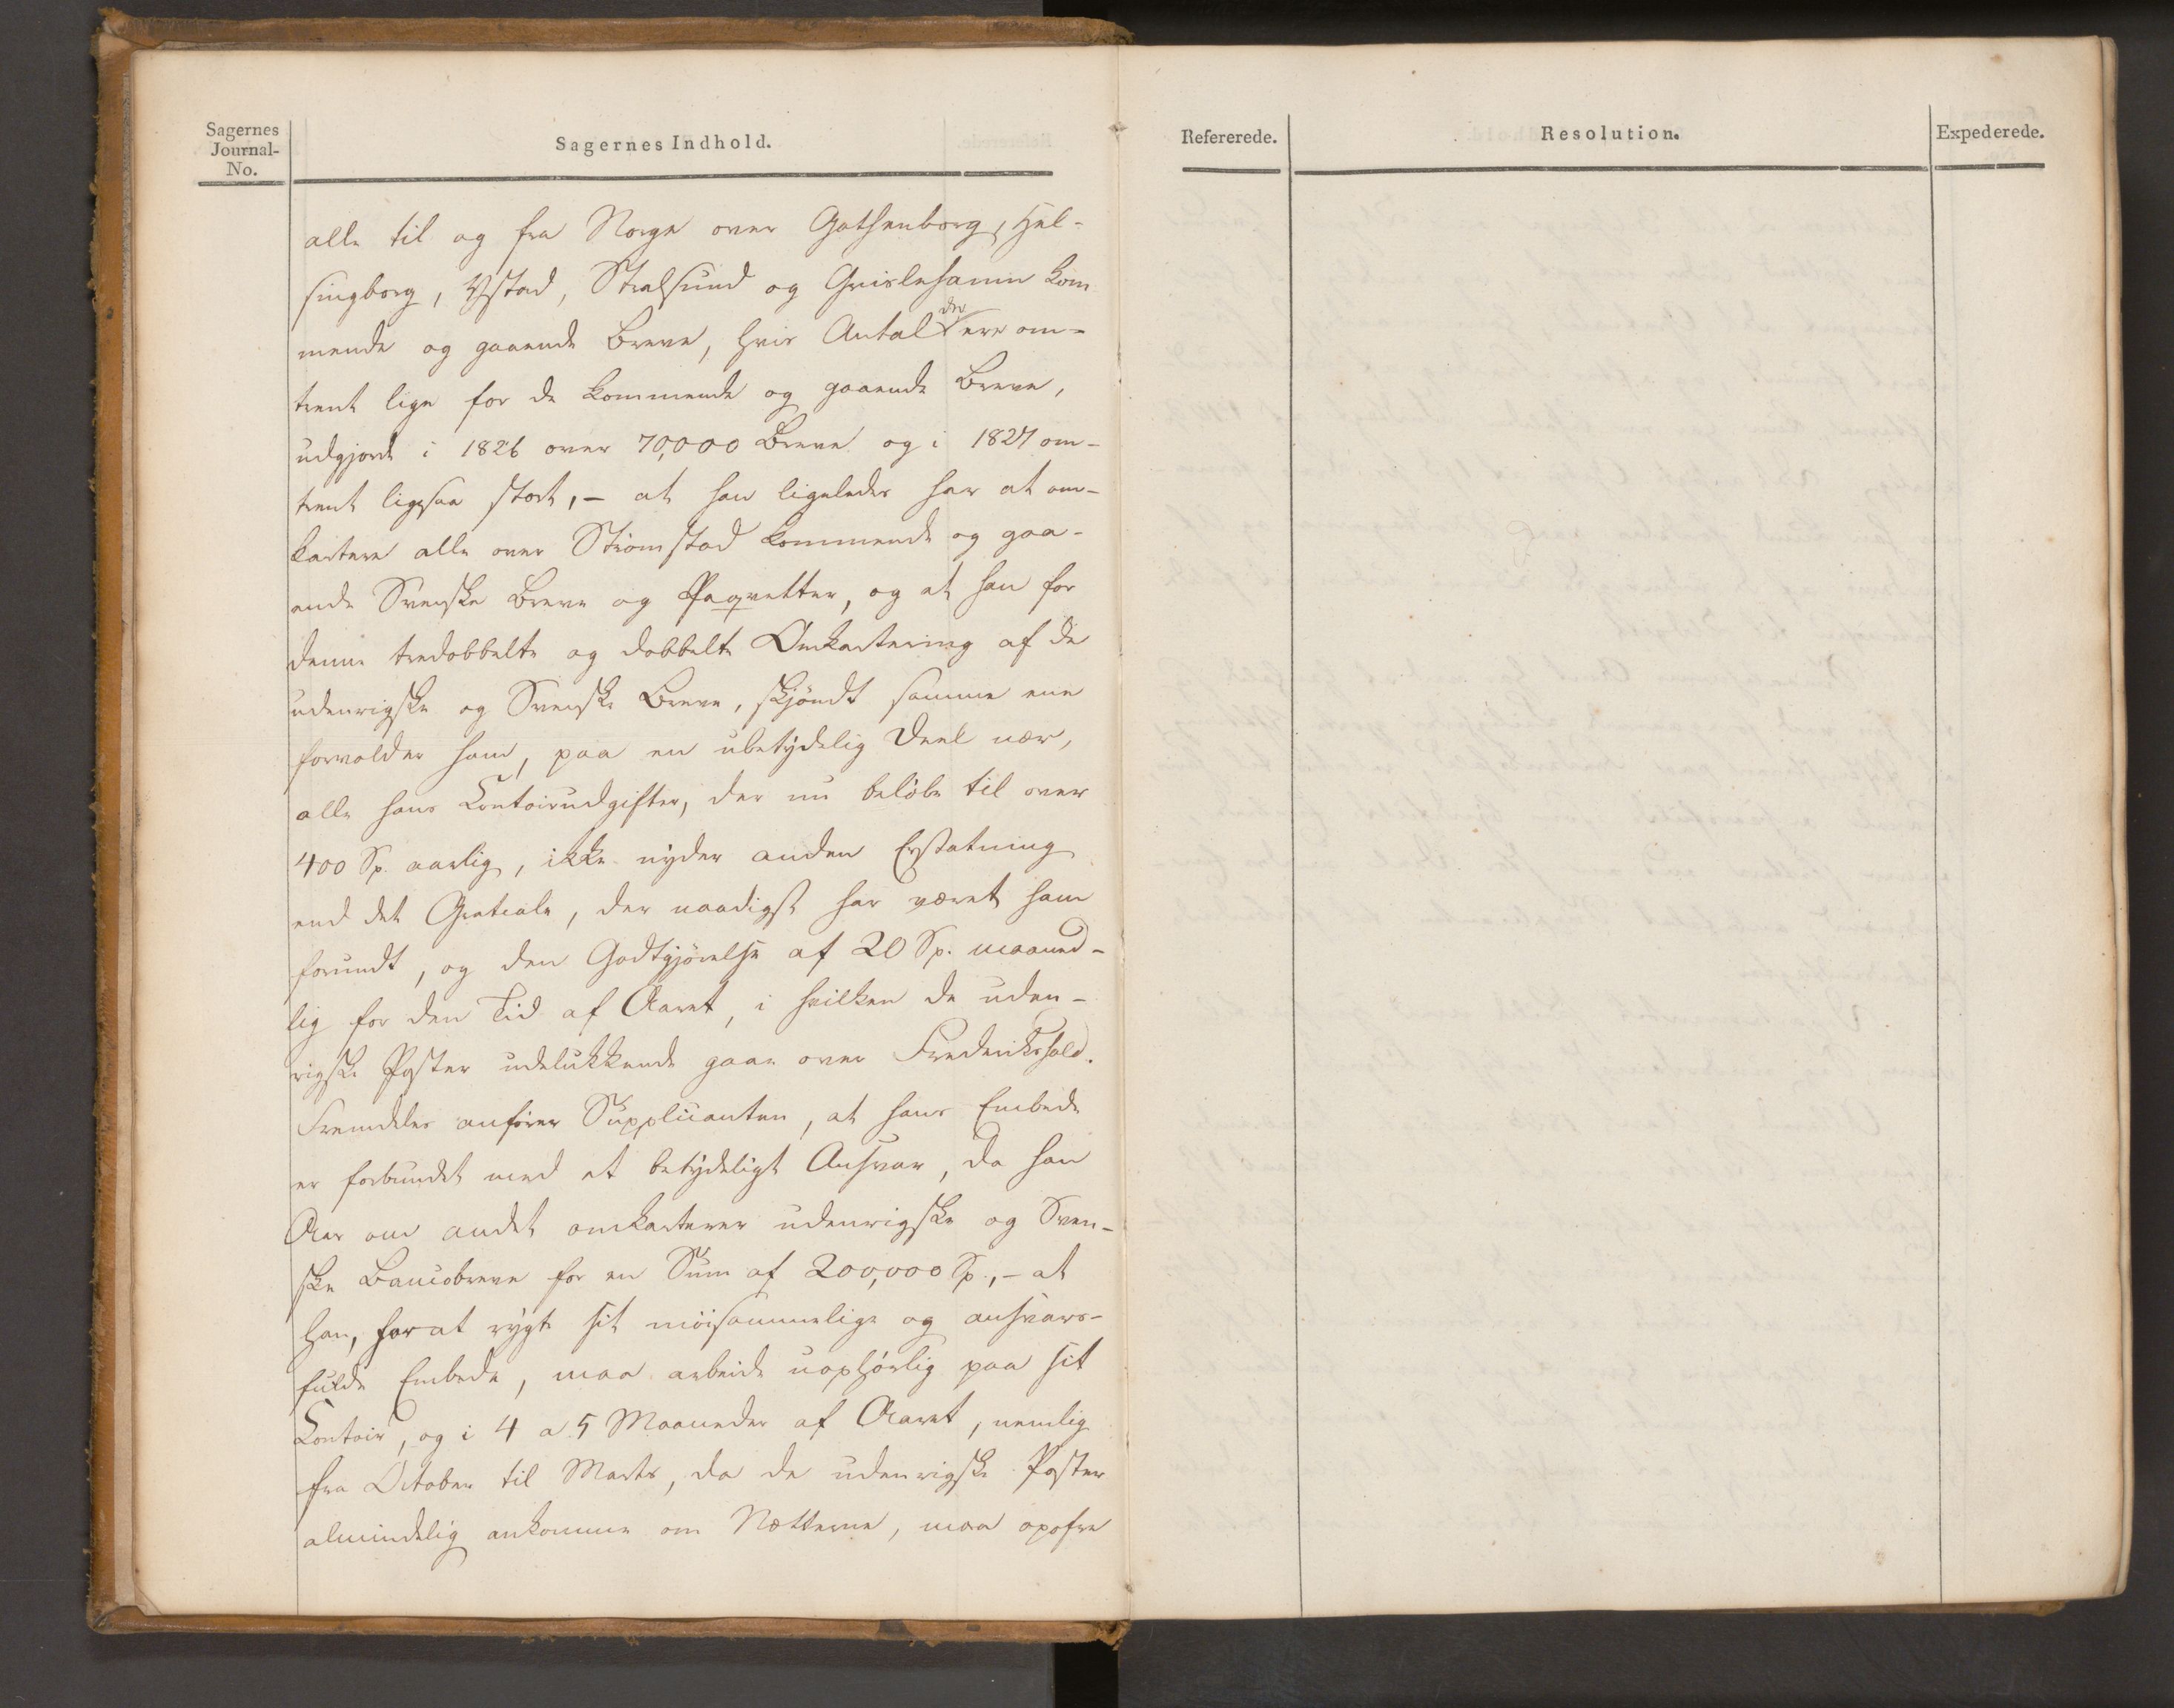 Sagernes
Journal-
No.
Sagernes Indhold.
Refererede.
Resolution.
Expederede.
alle til og fra Norge over Gothenborg, Hel-
singborg, Ystad, Stralsund og Grislehamn kom
mende og gaaende Breve, hvis Antal der ere om-
trent lige for de kommende og gaaende Breve,
udgjorde i 1826 over 70,000 Breve og i 1827 om-
trent ligesaa stort, - at han ligeledes har at om-
kartere alle over Strømstad kommende og gaa-
ende Svenske Breve og Paqvetter, og at han for
denne tredobbelte og dobbelte Omkartering af de
udenrigske og Svenske Breve, skjøndt samme ene
forvolder ham, paa en ubetydelig Deel nær,
alle hans Contoirudgifter, der nu beløbe til over
400 Sp. aarlig, ikke nyder anden Erstatning
end det Gratiale, der naadigst har været ham
forundt, og den Godtgjørelse af 20 Sp. maaned-
lig for den Tid af Aaret, i hvilken de uden-
rigske Poster udelukkende gaae over Frederikshald.
Fremdeles anfører Supplicanten, at hans Embede
er forbundet med et betydeligt Ansvar, da han
Aar om andet omkarterer udenrigske og Sven-
ske Bancobreve for en Sum af 200,000 Sp., - at
han, for at rygte sit møisommelige og ansvars-
fulde Embede, maa arbeide uophørlig paa sit
Contoir, og i 4 a 5 Maaneder af Aaret, nemlig
fra October til Marts, da de udenrigske Poster
almindelig ankomme om Nætterne, maa opofre